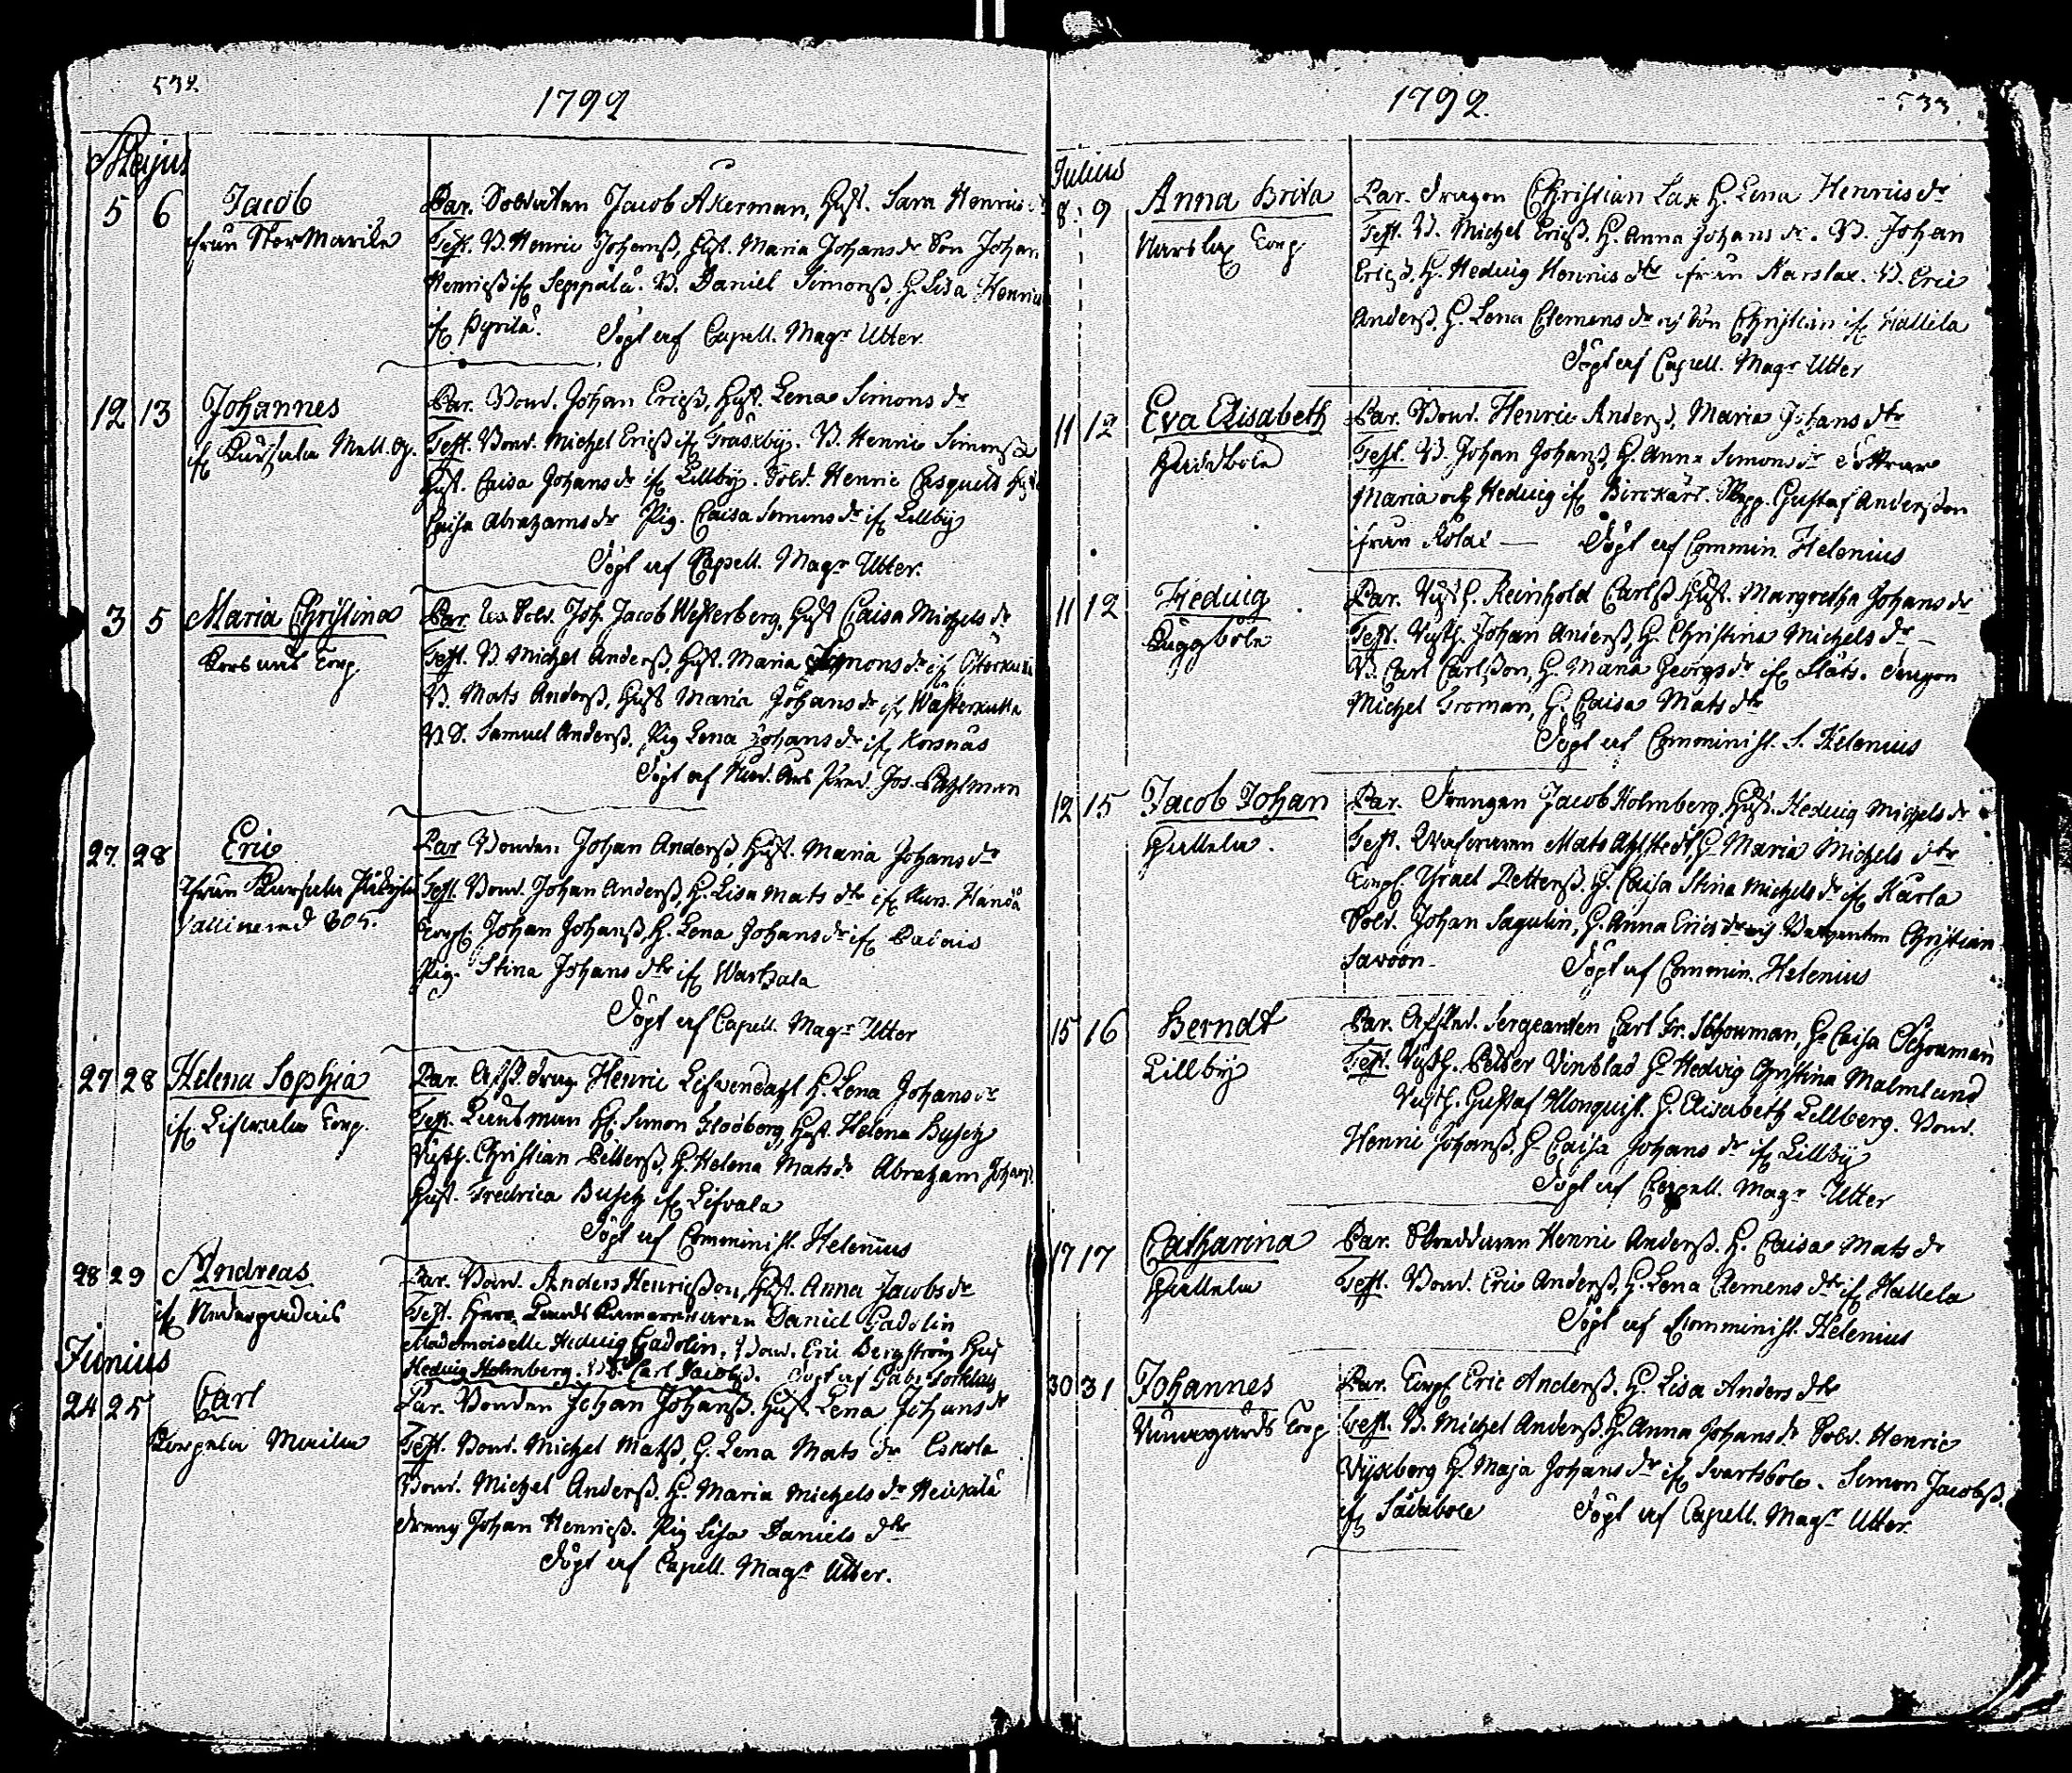 532
1792
Majus
5 6 Jacob
från Stor Marila
Par. Soldaten Jacob Akerman, Hust. Sara Henrics
Test. B. Henric Johanss, Hust. Maria Johans dr Son Johan
Henricss if. Seppälä. B. Daniel Simonss, H. Lisa Henrics
if. Pyrilä. Döpt af Capell. Magr Utter.
12 13 Johannes
if. Kursala Mell. g.
Par. Bond. Johan Ericss, Hust. Lena Simons dr
Test. Bond. Michel Ericss if. Gräsxby. B. Henric Simonss
Hust. Caisa Johans dr if. Lillby. Sold. Henric Casquels
Caisa Abrahams dr Pig. Caisa Simons dr if. Lillby
Döpt af Capell. Magr Utter.
3 5 Maria Christina
Korsnäs Torp.
Par. Sold. Joh. Jacob Westerberg, Hust Caisa Michels dr
Test. B. Michel Anderss, Hust. Maria Simons dr if.
B. Mats Anderss, Hust Maria Johans dr if. Wästerkulla
B. S. Samuel Anderss. Pig Lena Johans dr if. Korsnäs
Döpt af Pred. Jos. Pahlman
27 28 Eric
ifrån Kursala
Par Bonden Johan Anderss, Hust. Maria Johans dr
Test. Bond. Johan Anderss, H. Lisa Mats dtr if.
Torp. Johan Johanss, H. Lena Johans dr if.
Pig. Stina Johans dtr if. Warhala
Döpt af Capell. Magr Utter
27 28 Helena Sophia
if. Lifwala Torp.
Par. Afsk. drag Henric Lifwendahl H. Lena Johans dr
Test. Länsman H. Simon Flodberg, Hust. Helena Busch
Christian Petterss, H. Helena Mats dr Abraham Johanss
Hust. Fredrica Busch if. Lifvala
Döpt af Comminist. Helenius
28 29 Andreas
if.
Par. Bond. Anders Henricsson, Hust. Anna Jacobs dr
Test. Herr Lands Kamereraren Daniel Gadolin
Mademoiselle Hedvig Gadolin, Bond. Eric Bergström Hust
Hedvig Holmberg. B. S. Carl Jacobss. Döpt af Gab.
Junius
24 25 Carl
Marila
Par. Bonden Johan Johanss. Hust. Lena Johans dr
Test. Bond. Michel Matss, H. Lena Mats dr Eskola
Bond. Michel Anderss. H. Maria Michels dr Heickilä
dreng Johan Henricss. Pig Lisa Daniels dtr
Döpt af Capell. Magr Utter.
1792.
533
Julius
8. 9 Anna Brita
Karslax Torp
Par. dragon Christian Lax H. Lena Henrics dr
Test. B. Michel Ericss. H. Anna Johans dr. B. Johan
Ericss. H. Hedvig Henrics dtr ifrån Karslax. B. Eric
Anderss. H. Lena Clemens dr och Son Christian if. Hallela
Döpt af Capell. Magr Utter
11 12 Eva Elisabeth
Par. Bond. Henric Anderss, Maria Johans dtr
Test. B. Johan Johanss, H. Anna Simons dr döttrar
Maria och Hedvig if. Birckärr. Gustaf Andersson
ifrån Kölax — Döpt af Commin. Helenius
11 12 Hedvig
Kuggböle
Par. Rusth. Reinhold Carlss Hust. Margretha Johans dr
Test. Rusth. Johan Anderss, H. Christina Michels dr —
B. Carl Carlsson, H. Maria Georgs dr if. Släts. dragon
Michel Froman, H. Caisa Mats dtr
Döpt af Comminist. S. Helenius
12 15 Jacob Johan
Hallela.
Par. Drengen Jacob Holmberg, Hust. Hedvig Michels dr
Test. Mats Ahlstedt, H. Maria Michels dtr
Torp. Israel Petterss. H. Caisa Stina Michels dr if. Karla
Sold. Johan Sagulin, H. Anna Erics dr och Christian
Savoon. Döpt af Commin. Helenius
15 16 Berndt
Lillby
Par. Afsked. Sergeanten Carl Fr. Schouman, H. Caisa Schouman
Test. Rusth. Petter Vinblad H. Hedvig Christina Malmlund
Rusth. Gustaf Monquist. H. Elisabeth Lillberg. Bond.
Henric Johanss, H. Caisa Johans dr if. Lillby
Döpt af Capell. Magr Utter
17 17 Catharina
Hallela
Par. Skräddaren Henric Anderss. H. Caisa Mats dr
Test. Bond. Eric Anderss, H. Lena Clemens dtr if. Hallela
Döpt af Comminist. Helenius
30 31 Johannes
Torp
Par. Torp. Eric Anderss. H. Lisa Anders dtr
Test. B. Michel Anderss. H. Anna Johans dr Sold. Henric
Vijkberg H. Maja Johans dr if. Svartsböle. Simon Jacobss.
if. Tådaböle Döpt af Capell. Magr Utter.